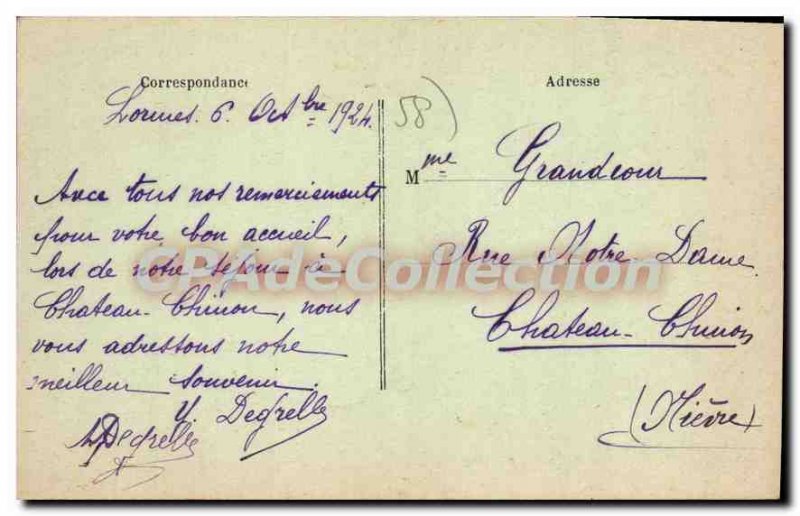 Correspondance
Lormes. 6. Octbre 1924.
Avec tous nos remerciements
pour votre bon accueil,
lors de notre séjour à
Chateau-Chinon, nous
vous adressons notre
meilleur souvenir.
Y. Degrelle
Degrelle
58
Adresse
Mme Grandcour
Rue Notre-Dame
Chateau-Chinon
(Nièvre)
CPAdeCollection